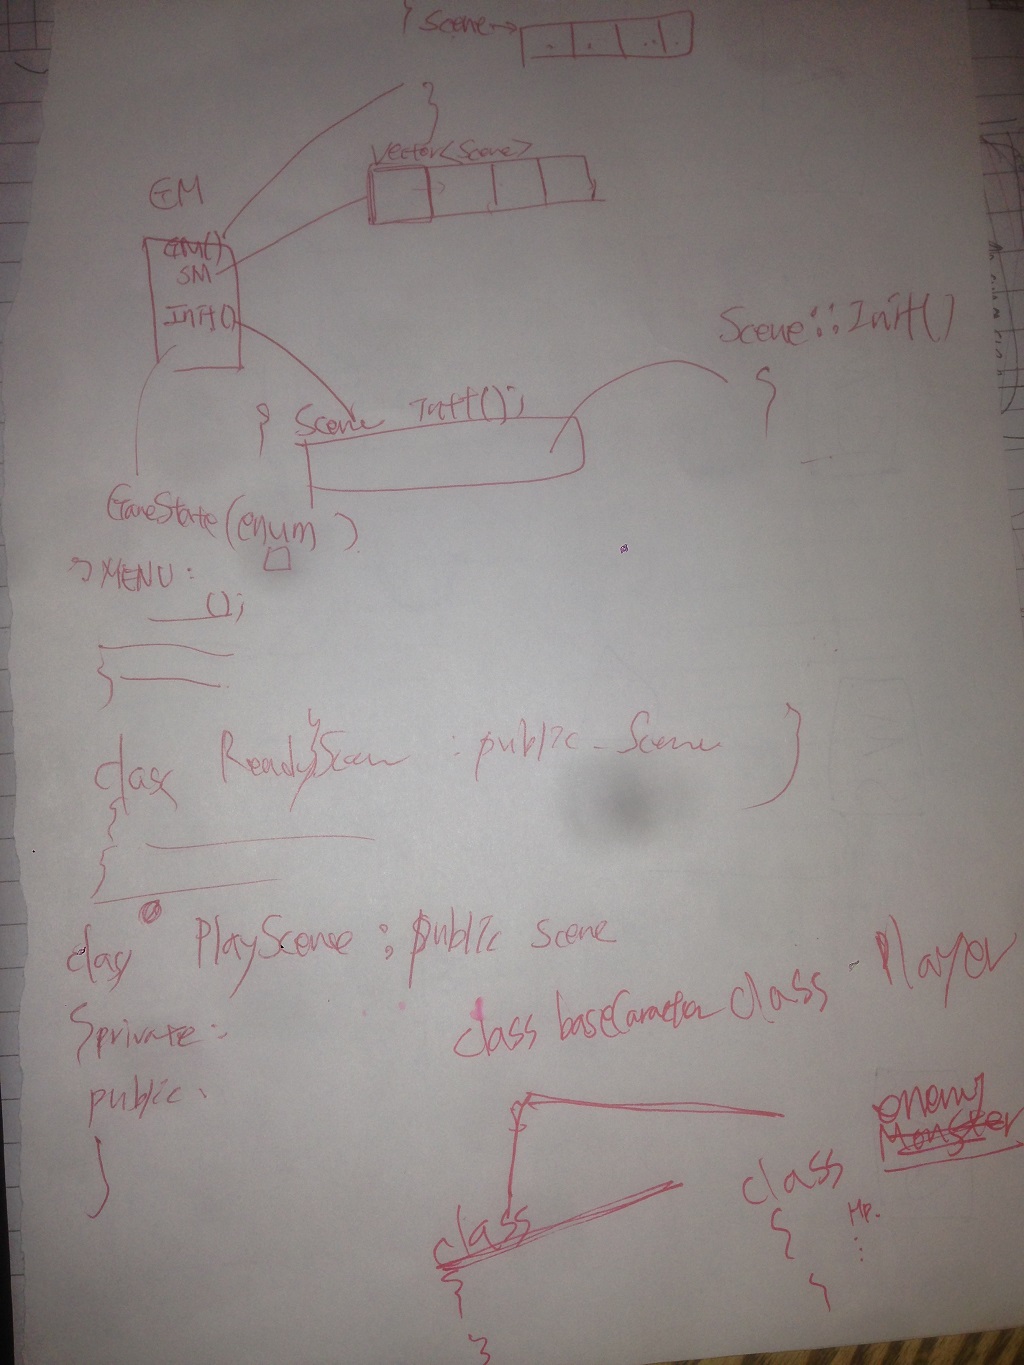 { Scene→
}
Vector<Scene>
GM
GM()
SM
Init()
Scene::Init()
{
{ Scene Init();
GameState(enum )
MENU:
();
}
class ReadyScene : public Scene
{
}
class PlayScene : public Scene
{ private:
public:
}
class baseCaracter class Player
enemy
Monster
class
{ HP.
}
class
{
}